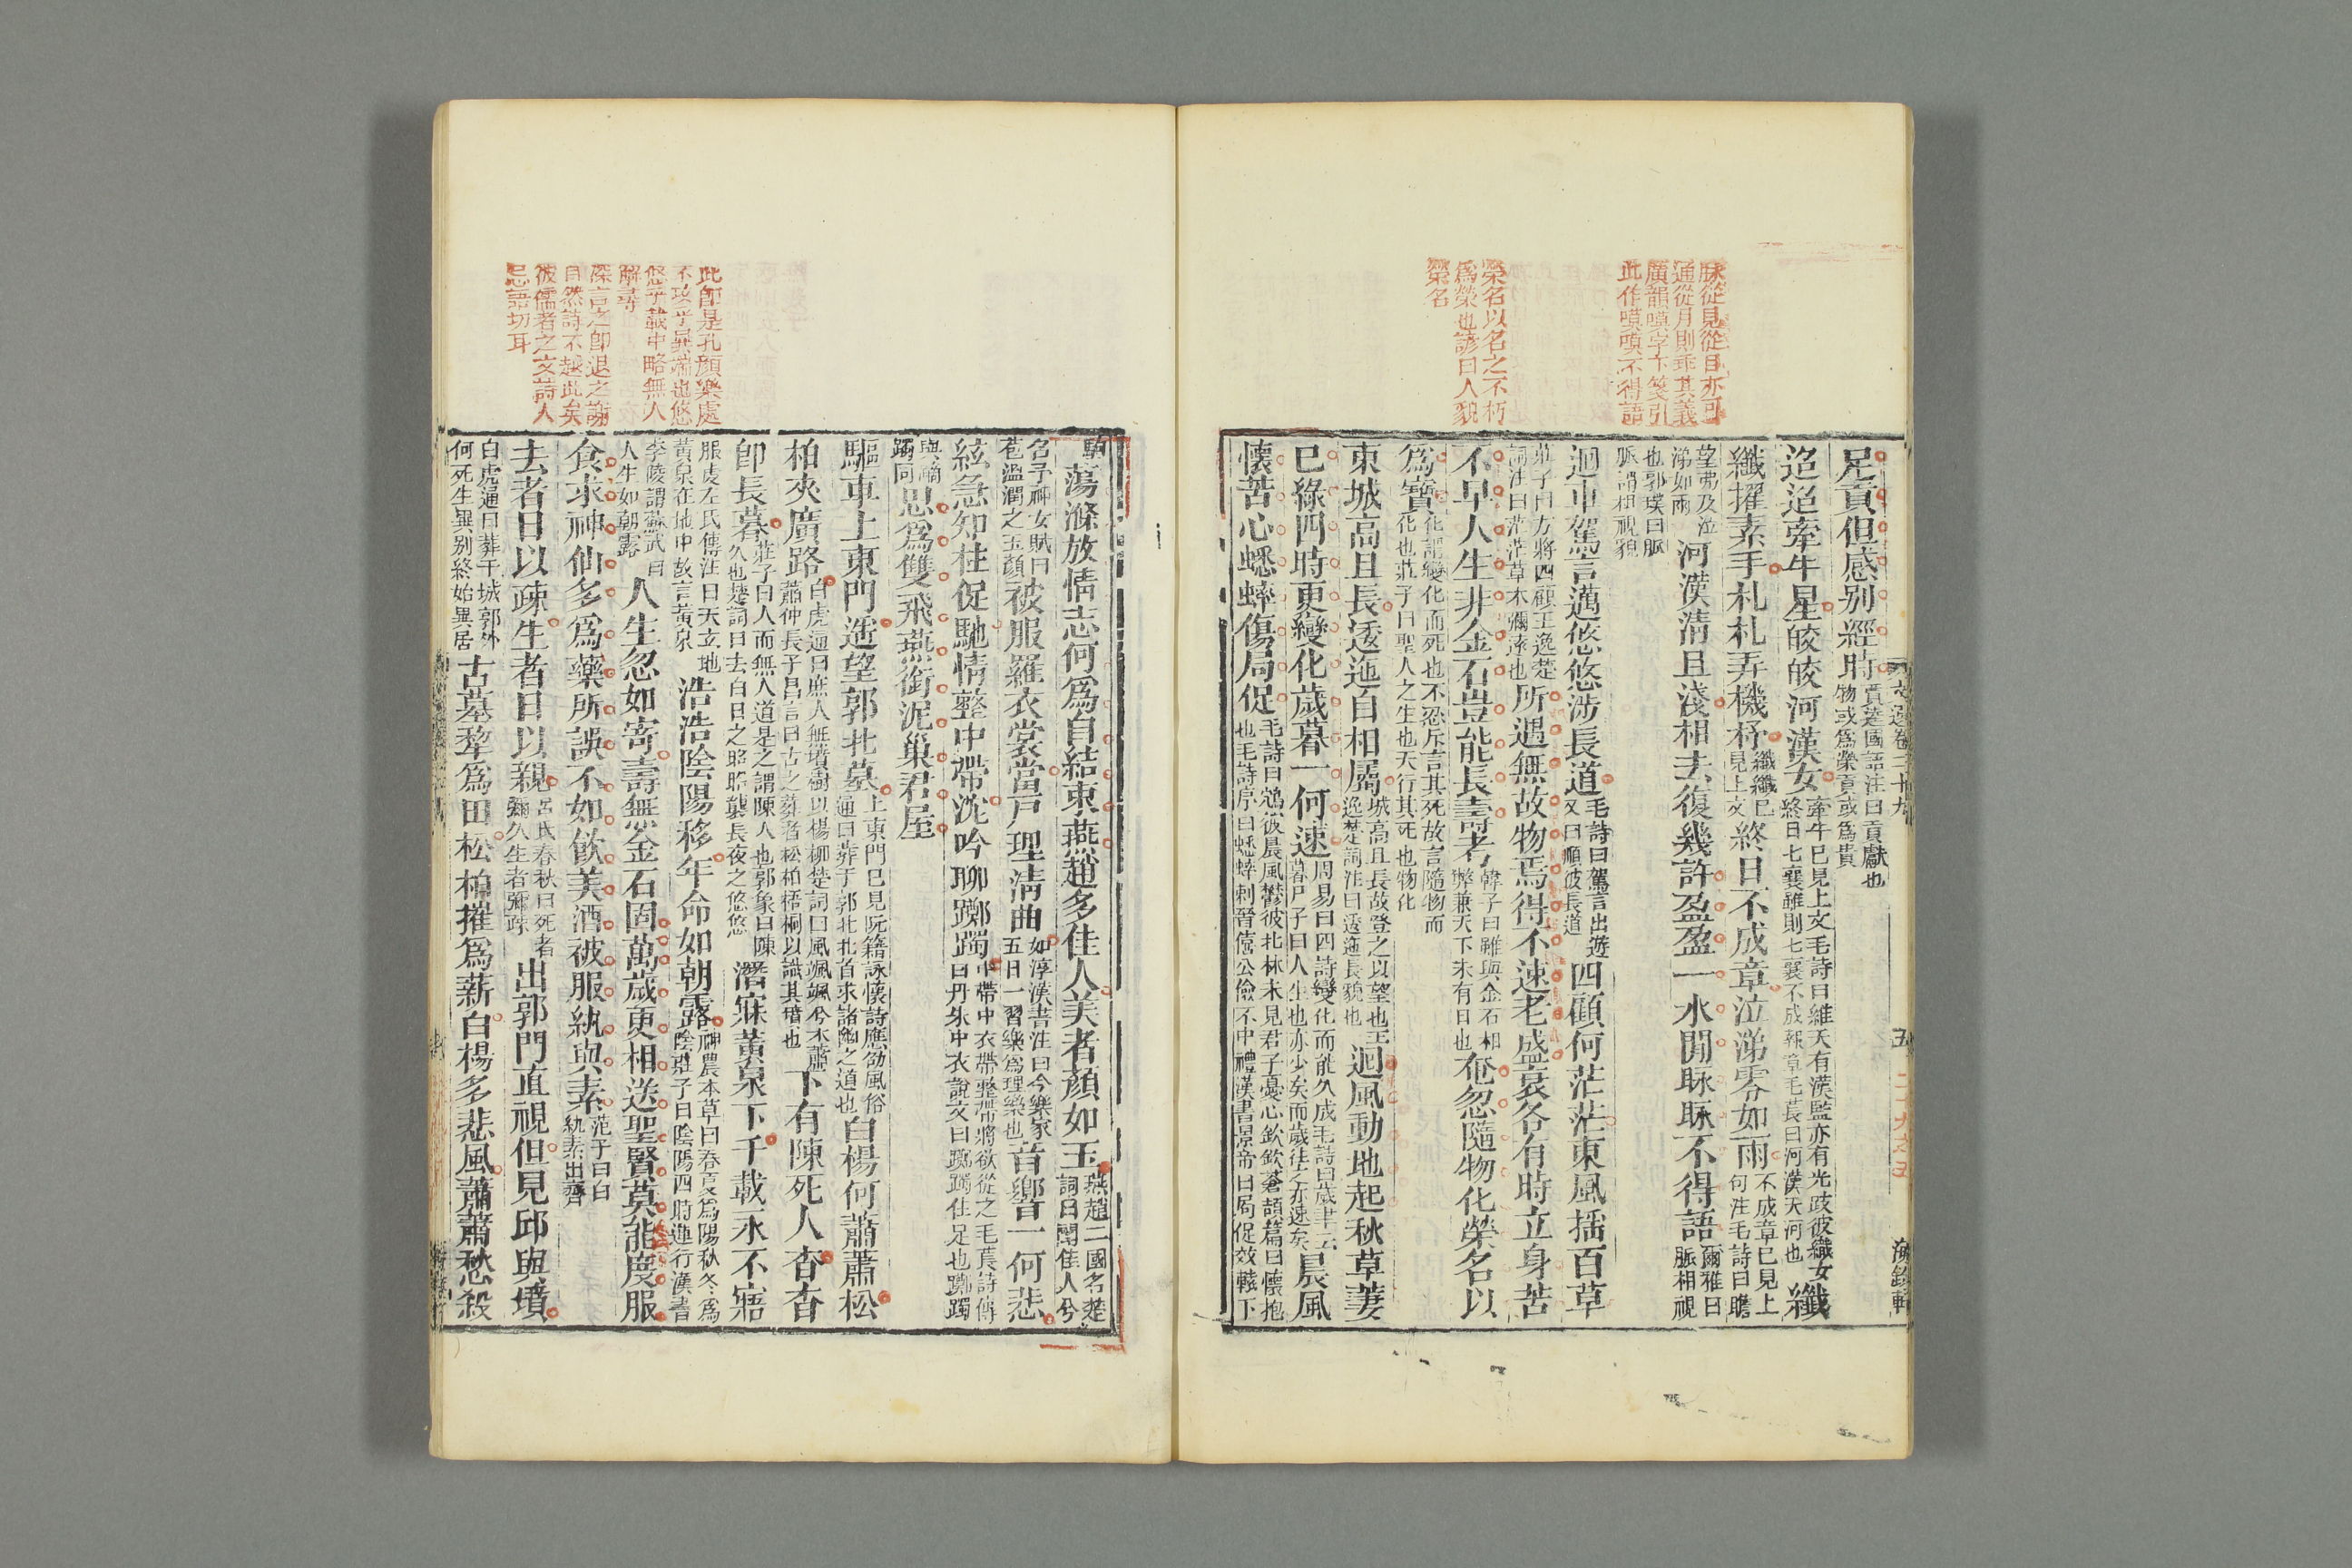 脉從見從目亦可
通從月則乖其義
廣韻嗼字下箋引
此作嗼嗼不得語
榮名以名之不朽
爲榮也諺曰人貌
榮名
足貢但感别經時賈逵國語注曰貢獻也物或爲榮貢或爲貴
迢迢牽牛星皎皎河漢女牽牛已見上文毛詩曰維天有漢監亦有光跂彼織女終日七襄雖則七襄不成報章毛萇曰河漢天河也纖
纖擢素手札札弄機杼纖纖已見上文終日不成章泣涕零如雨不成章已見上句注毛詩曰瞻
望弗及泣涕如雨河漢清且淺相去復幾許盈盈一水閒脉脉不得語爾雅曰脈相視
也郭璞曰脈脈謂相視貌
迴車駕言邁悠悠涉長道毛詩曰駕言出遊又曰順彼長道四顧何茫茫東風揺百草
莊子曰方將四顧王逸楚詞注曰茫茫草木彌遠也所遇無故物焉得不速老盛衰各有時立身苦
不早人生非金石豈能長壽考韓子曰雖與金石相弊兼天下未有日也奄忽隨物化榮名以
爲寶化謂變化而死也不忍斥言其死故言隨物而化也莊子曰聖人之生也天行其死也物化
東城高且長逶迤自相屬城高且長故登之以望也王逸楚詞注曰逶迤長貌也迴風動地起秋草萋
已綠四時更變化歲暮一何速周易曰四時變化而能久成毛詩曰歲聿云暮尸子曰人生也亦少矣而歲往之亦速矣晨風
懷苦心蟋蟀傷局促毛詩曰鴥彼晨風鬱彼北林未見君子憂心欽欽蒼頡篇曰懷抱也毛詩序曰蟋蟀刺晉僖公儉不中禮漢書景帝曰局促效轅下
文選卷二十九
五
二十九之五
海錄軒
此卽是孔顏樂處
不攻乎異端也悠
悠千載中略無人
解尋
深言之卽退之謝
自然詩不越此矣
彼儒者之文詩人
忌語切耳
駒蕩滌放情志何爲自結束燕趙多佳人美者顏如玉燕趙二國名楚詞曰聞佳人兮
名予神女賦曰苞溫潤之玉顏被服羅衣裳當戸理清曲如淳漢書注曰今樂家五日一習樂爲理樂也音響一何悲
絃急知柱促馳情整中帶沈吟聊躑躅中帶中衣帶整帶將欲從之毛萇詩傳曰丹朱中衣說文曰躑躅住足也躑躅
與蹢躅同思爲雙飛燕銜泥巢君屋
驅車上東門遥望郭北墓上東門已見阮籍詠懷詩應劭風俗通曰葬于郭北北首求諸幽之道也白楊何蕭蕭松
柏夾廣路白虎通曰庶人無墳樹以楊柳楚詞曰風颯颯兮木蕭蕭仲長子昌言曰古之葬者松柏梧桐以識其墳也下有陳死人杳杳
卽長暮莊子曰人而無人道是之謂陳人也郭象曰陳久也楚詞曰去白日之昭昭襲長夜之悠悠潛寐黃泉下千載永不寤
服虔左氏傳注曰天玄地黃泉在地中故言黃泉浩浩陰陽移年命如朝露神農本草曰春夏爲陽秋冬爲陰莊子曰陰陽四時運行漢書
李陵謂蘇武曰人生如朝露人生忽如寄壽無金石固萬歲更相送聖賢莫能度服
食求神仙多爲藥所誤不如飲美酒被服紈與素范子曰白紈素出齊
去者日以疎生者日以親呂氏春秋曰死者彌久生者彌疎出郭門直視但見邱與墳
白虎通曰葬于城郭外何死生異别終始異居古墓犂爲田松柏摧爲薪白楊多悲風蕭蕭愁殺